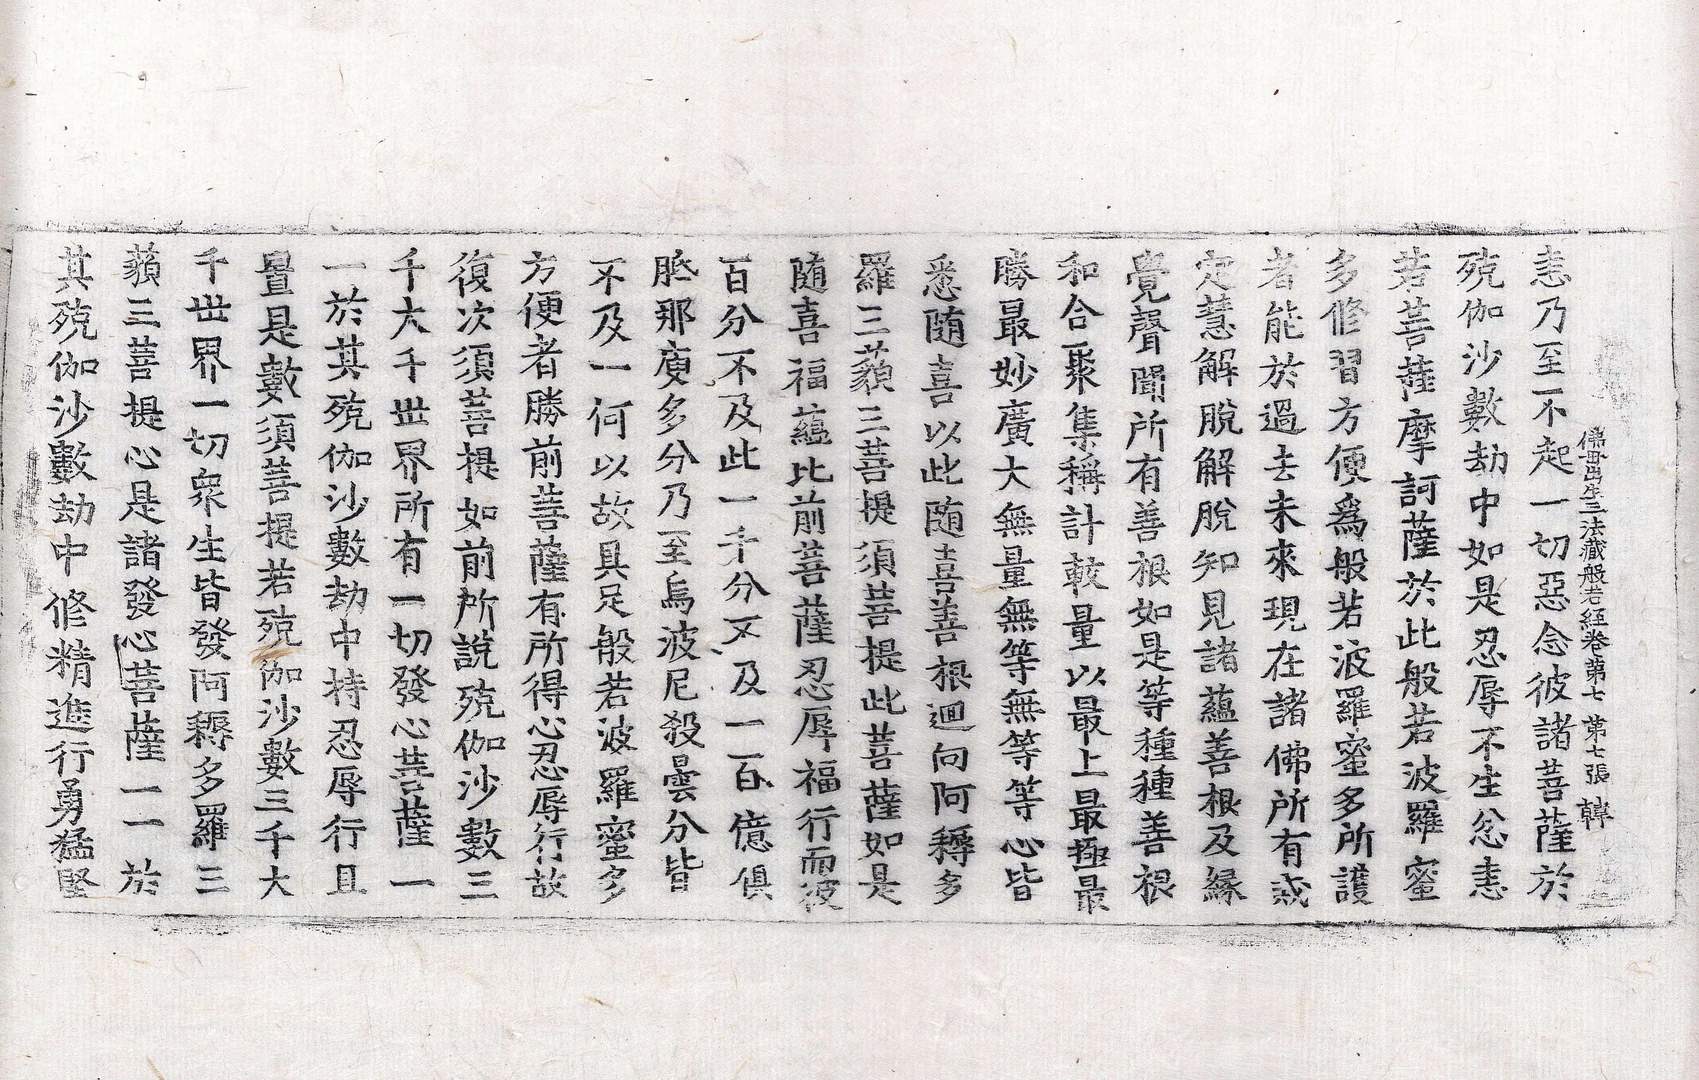 佛母出生三法藏般若經卷第七 第七張 韓
恚乃至不起一切惡念彼諸菩薩於
殑伽沙數劫中如是忍辱不生忿恚
若菩薩摩訶薩於此般若波羅蜜
多修習方便爲般若波羅蜜多所護
者能於過去未來現在諸佛所有戒
定慧解脫解脫知見諸蘊善根及緣
覺聲聞所有善根如是等種種善根
和合聚集稱計較量以最上最極最
勝最妙廣大無量無等無等等心皆
悉随喜以此随喜善根迴向阿耨多
羅三藐三菩提須菩提此菩薩如是
随喜福蘊比前菩薩忍辱福行而彼
百分不及此一千分不及一百億俱
胝那庾多分乃至烏波尼殺曇分皆
不及一何以故具足般若波羅蜜多
方便者勝前菩薩有所得心忍辱行故
復次須菩提如前所說殑伽沙數三
千大千世界所有一切發心菩薩一
一於其殑伽沙數劫中持忍辱行且
置是數須菩提若殑伽沙數三千大
千世界一切衆生皆發阿耨多羅三
藐三菩提心是諸發心菩薩一一於
其殑伽沙數劫中修精進行勇猛堅